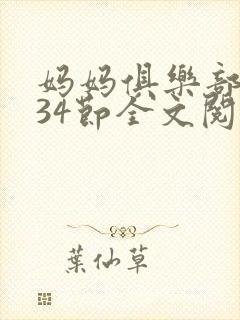 妈妈俱樂部
34節全文閱
葉仙草